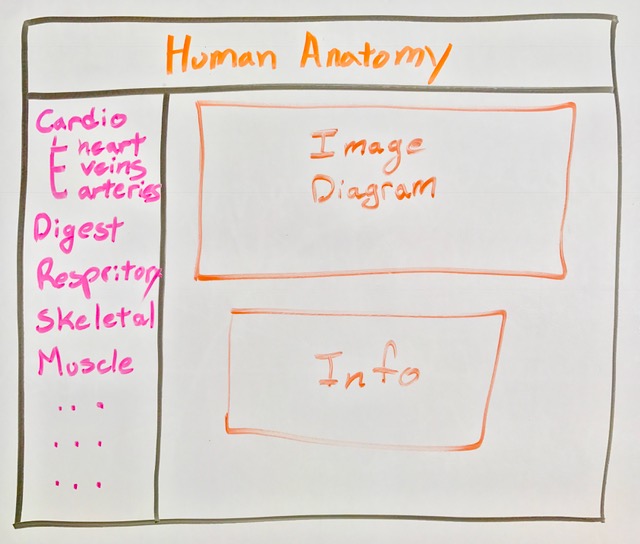 Human Anatomy
Cardio
heart
veins
arteries
Digest
Respritory
Skeletal
Muscle
...
...
...
Image
Diagram
Info